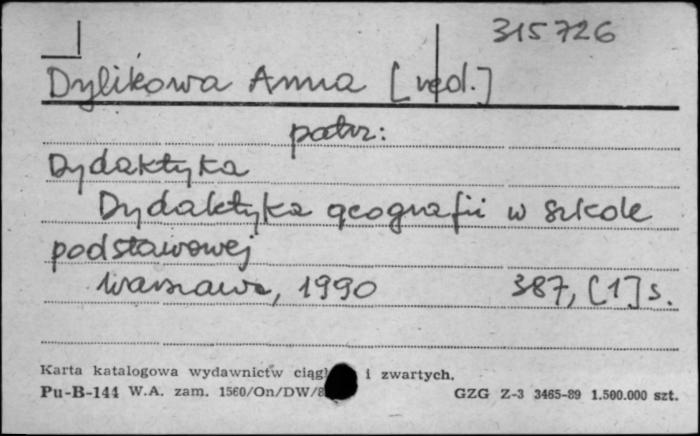 315726
Dylikowa Anna [red.]
patrz:
Dydaktyka
Dydaktyka geografii w szkole
podstawowej
Warszawa, 1990 387, [1] s.
Karta katalogowa wydawnictw i zwartych.
Pu-B-144 W.A. zam. 1560/On/DW/8 GZG Z-3 3465-89 1.500.000 szt.